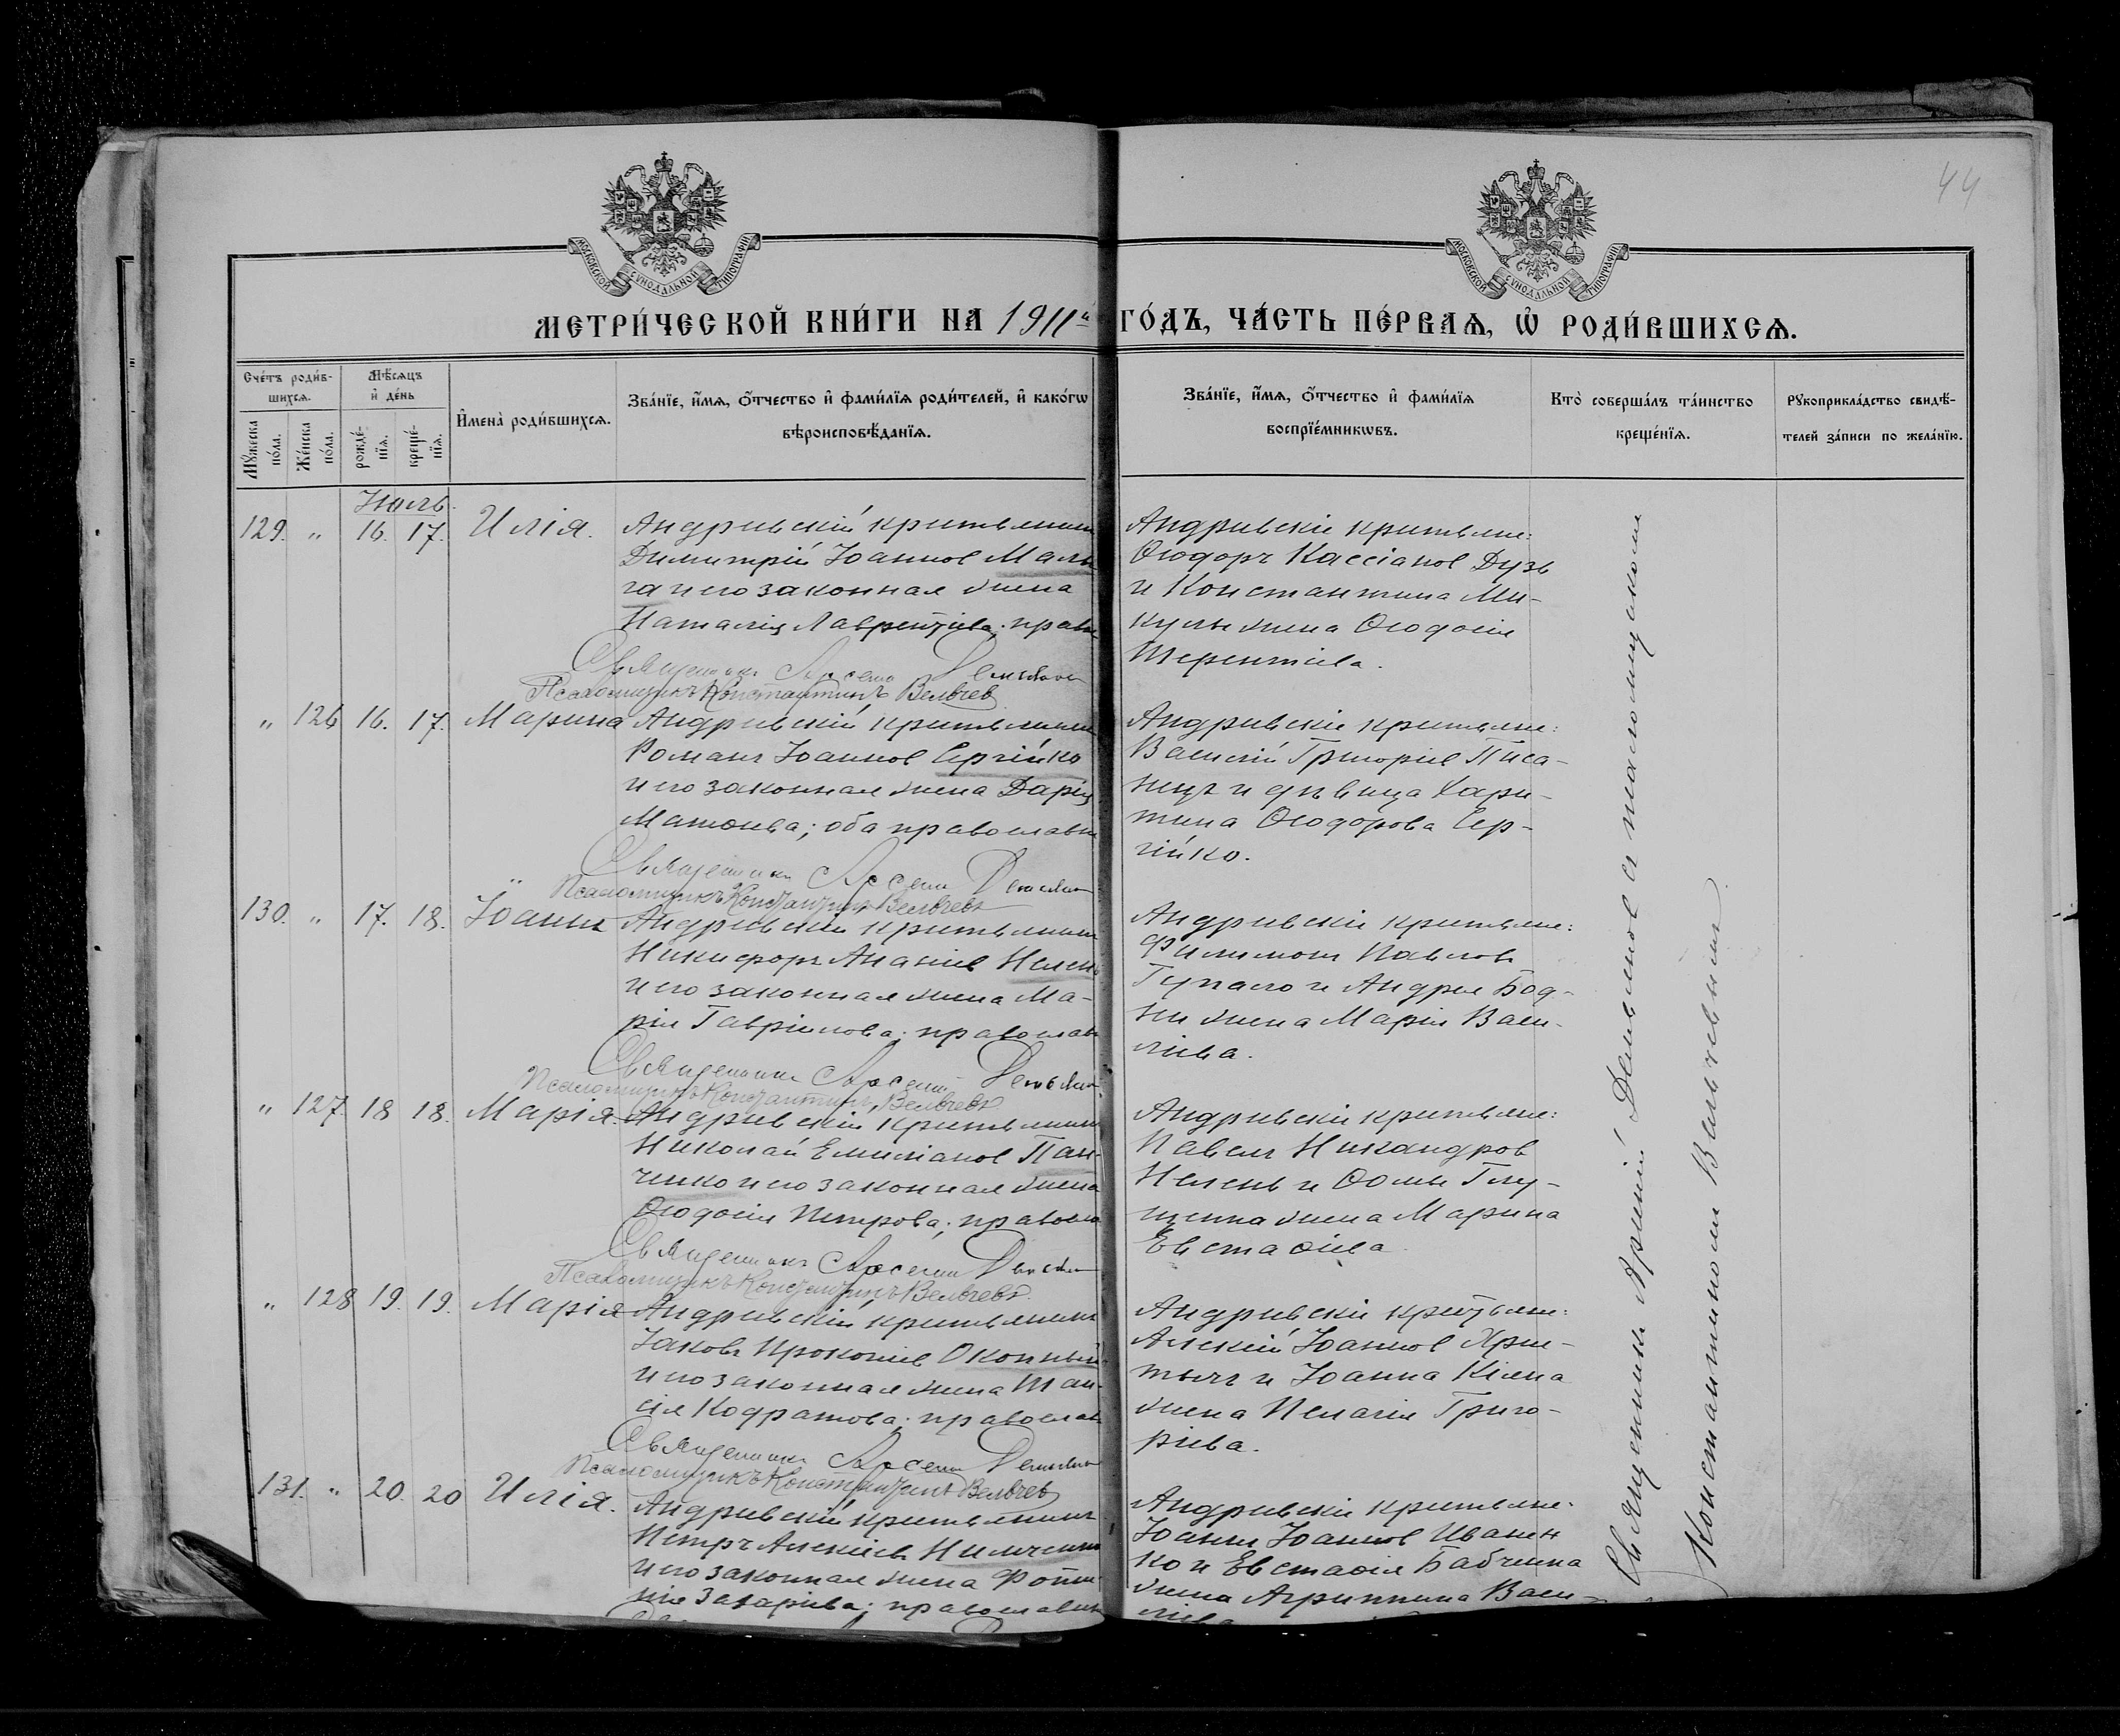 44
МОСКОВСКОЙ СѴНОДАЛЬНОЙ ТИПОГРАФІИ
МОСКОВСКОЙ СѴНОДАЛЬНОЙ ТИПОГРАФІИ
МЕТРИ́ЧЕСКОЙ КНИ́ГИ НА 1911й ГО́ДЪ, ЧА́СТЬ ПЕ́РВАѦ, Ѽ РОДИ́ВШИХСѦ.
Сче́тъ роди́в-
шихсѧ.
Мѣ́сѧцъ
и҆ де́нь
Мꙋ́жеска
по́ла.
Же́нска
по́ла.
рожде́-
нїѧ.
креще́-
нїѧ.
И҆мена̀ роди́вшихсѧ.
Зва́нїе, и҆́мѧ, ѻ҆́тчество и҆ фами́лїѧ роди́телей, и҆ како́гѡ
вѣроисповѣ́данїѧ.
Зва́нїе, и҆́мѧ, ѻ҆́тчество и҆ фами́лїѧ
воспрїе́мникѡвъ.
Кто̀ соверша́лъ та́инство
креще́нїѧ.
Рꙋкоприкла́дство свидѣ́-
телей за́писи по жела́нїю.
Июль.
129. " 16. 17. Илія.
Андреевскій крестьянин
Димитрій Іоаннов Маль
га и его законная жена
Наталія Лаврентіева; правос
Священник Арсений Демьянов
Псаломщикъ Константинъ Вельчев
Андреевскіе крестьяне:
Ѳеодоръ Кассіанов Дузь
и Константина Ми-
кулы жена Ѳеодосія
Терентіева.
" 126 16. 17. Марина
Андреевскій крестьянин
Романъ Іоаннов Сергійко
и его законная жена Дарія
Матѳеева; оба православн
Священник Арсений Демьянов
Псаломщикъ Константинъ Вельчевъ
Андреевскіе крестьяне:
Василій Григоріев Писа-
нецъ и дѣвица Хари-
тина Ѳеодорова Сер-
гійко.
130. " 17. 18. Іоаннъ
Андреевскій крестьянин
Никифоръ Ананіев Нелень
и его законная жена Ма-
рія Гавріилова; православ
Священник Арсений Демьянов
Псаломщикъ Константинъ Вельчевъ
Андреевскіе крестьяне:
Филимонъ Павлов
Гупало и Андрея Бод-
ни жена Марія Васи-
ліева.
" 127 18 18. Марія
Андреевскій крестьянин
Николай Емиліанов Пан-
ченко и его законная жена
Ѳеодосія Петрова; правосл
Священник Арсений Демьянов
Псаломщикъ Константинъ Вельчевъ
Андреевскіе крестьяне:
Павелъ Никандров
Нелень и Ѳомы Глу-
щенка жена Марина
Евстаѳіева.
" 128 19. 19. Марія
Андреевскій крестьянинъ
Іаковъ Прокопіев Оконный
и его законная жена Таи-
сія Кодратова; православ
Священник Арсений Демьянов
Псаломщикъ Константинъ Вельчев
Андреевскіе крестьяне:
Алексій Іоаннов
и Іоанна
жена Пелагія Григо-
ріева.
131. " 20. 20 Илія.
Андреевскій крестьянинъ
Петръ Алексіевъ
и его законная жена Фоти-
нія Захаріева; православн
Андреевскіе крестьяне:
Іоаннъ Іоаннов Иванен
ко и Евстаѳія Бабченка
жена Агриппина Васи-
ліева
Священникъ Арсеній Демьянов съ псаломщиком
Константином Вельчевымъ